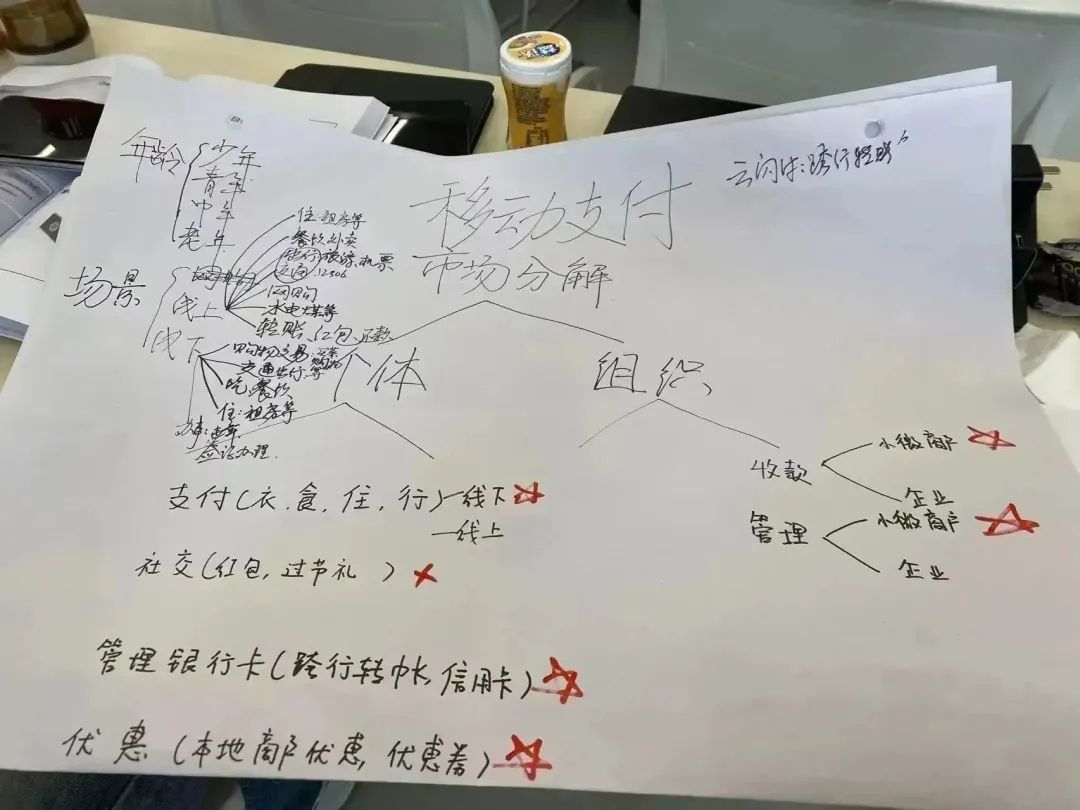 年龄
少年
青年
中年
老年
云闪付:跨行转账
移动支付
市场分解
场景
线上
住:租房等
餐饮外卖
出行旅游、机票
交通:12306
网购
水电煤等
转账、红包、还款
线下
购物交易:
交通出行等
吃:餐饮
住:租房等
签证办理
个体
组织
支付(衣.食.住,行)—线下
—线上
社交(红包,过节礼)
管理银行卡(跨行转帐,信用卡)
优惠(本地商户优惠,优惠券)
收款
小微商户
企业
管理
小微商户
企业